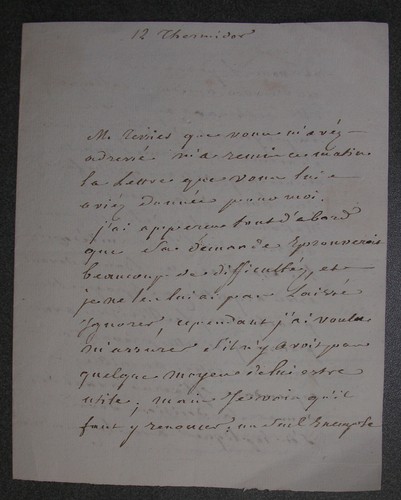 12 Thermidor
M. Terrier que vous m'avéz
adressé m'a remis ce matin
la lettre que vous lui
aviéz donnée pour moi.
j'ai apperçu tout d'abord
que sa demande Eprouverois
beaucoup de difficultés, et
je ne le lui ai pas Laissé
Ignorer, cependant j'ai voulu
m'assurer s'il n'y avois pas
quelque moyen de lui estre
utile; mais je vois qu'il
faut y renoncer; un seul Exemple